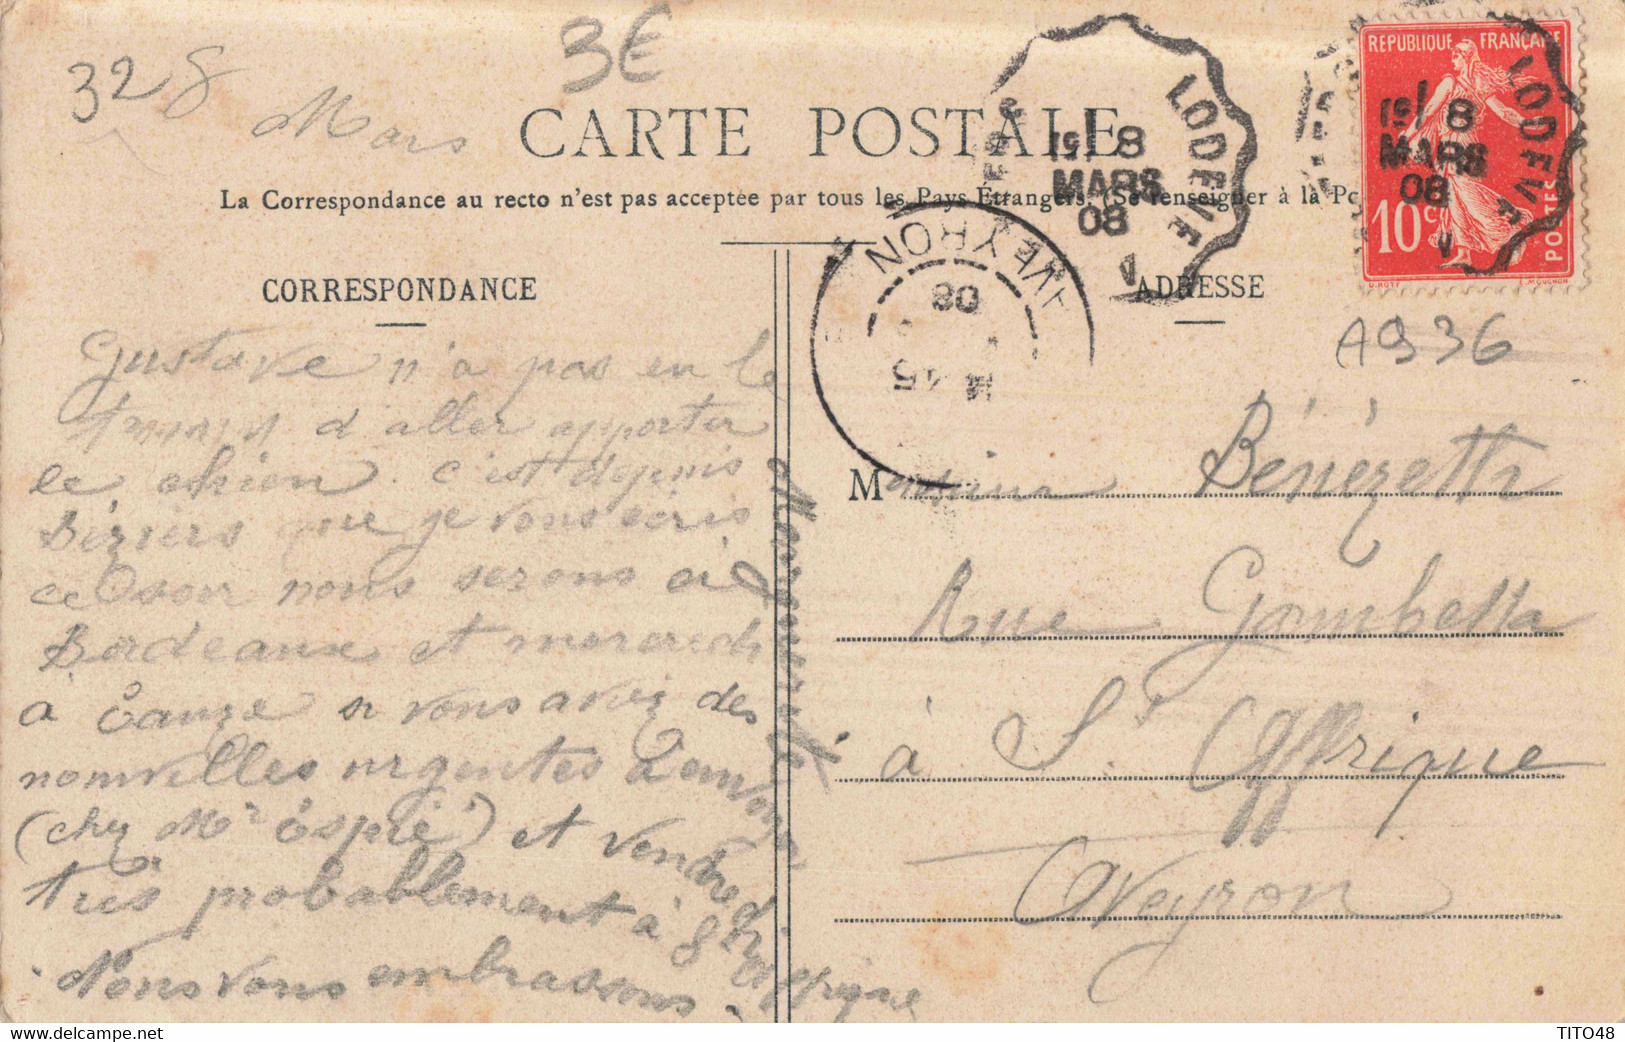 32 8
Mars
3€
CARTE POSTALE
La Correspondance au recto n'est pas acceptée par tous les Pays Étrangers. (Se renseigner à la Po
CORRESPONDANCE
ADRESSE
Gustave n'a pas eu le
temps d'aller apporter
le chien. c'est depuis
Béziers que je vous écris
ce soir nous serons à
Bordeaux et mercredi
à Eauze si vous avez des
nouvelles urgentes à envoyer
(chez Mr Espié) et vendredi
très probablement à St Affrique
Nous vous embrassons.
Marguerite
Madame Bénézette
Rue Gambetta
à St Affrique
Aveyron
A936
REPUBLIQUE FRANÇAISE
10c
POSTES
O.ROTY
E.MOUCHON
LODEVE
1E/ 8
MARS
08
LODEVE
1E/ 8
MARS
08
AVEYRON
08
TITO48